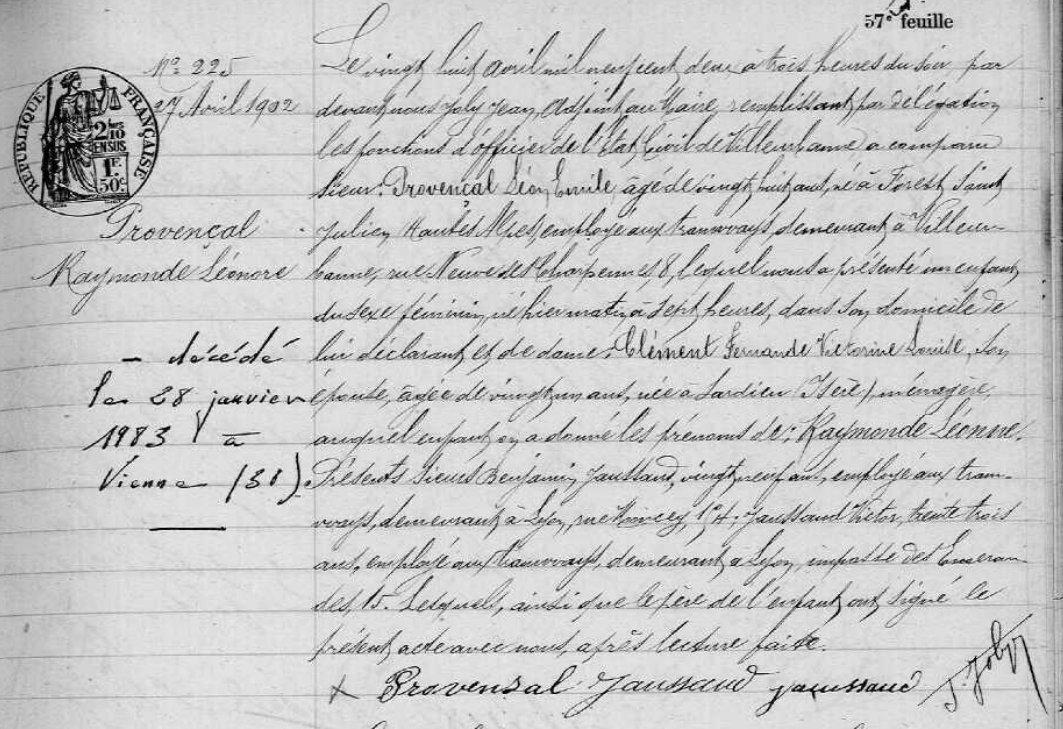 57e feuille
No 225
27 Avril 1902
RÉPUBLIQUE FRANÇAISE
2/10
EN SUS
1F.
50c
Provençal
Raymonde Léonore
- décédé
le 28 janvier
1983 à
Vienne (38)
Le vingt huit avril mil neuf cent deux à trois heures du soir, par
devant nous Joly Jean, Adjoint au Maire, remplissant par délégation
les fonctions d'officier de l'Etat Civil de Villeurbanne, a comparu
sieur: Provençal Léon Emile, âgé de vingt huit ans, né à Forest Saint
Julien Hautes Alpes, employé aux tramways, demeurant à Villeur-
banne, rue Neuve des Charpennes, 8, lequel nous a présenté un enfant
du sexe féminin, né hier matin à sept heures, dans son domicile de
lui déclarant, et de dame: Clément Fernande Victorine Louise, son
épouse, âgée de vingt un ans, née à Sardieu (Isère), ménagère,
auquel enfant on a donné les prénoms de: Raymonde Léonore.
Présents sieurs Benjamin Jaussaud, vingt neuf ans, employé aux tram-
ways, demeurant à Lyon, rue 174; Jaussaud Victor, trente trois
ans, employé aux tramways, demeurant à Lyon, impasse des Emerau-
des, 15. Lesquels, ainsi que le père de l'enfant ont signé le
présent acte avec nous, après lecture faite.
Provensal Jaussaud Jaussaud J. Joly